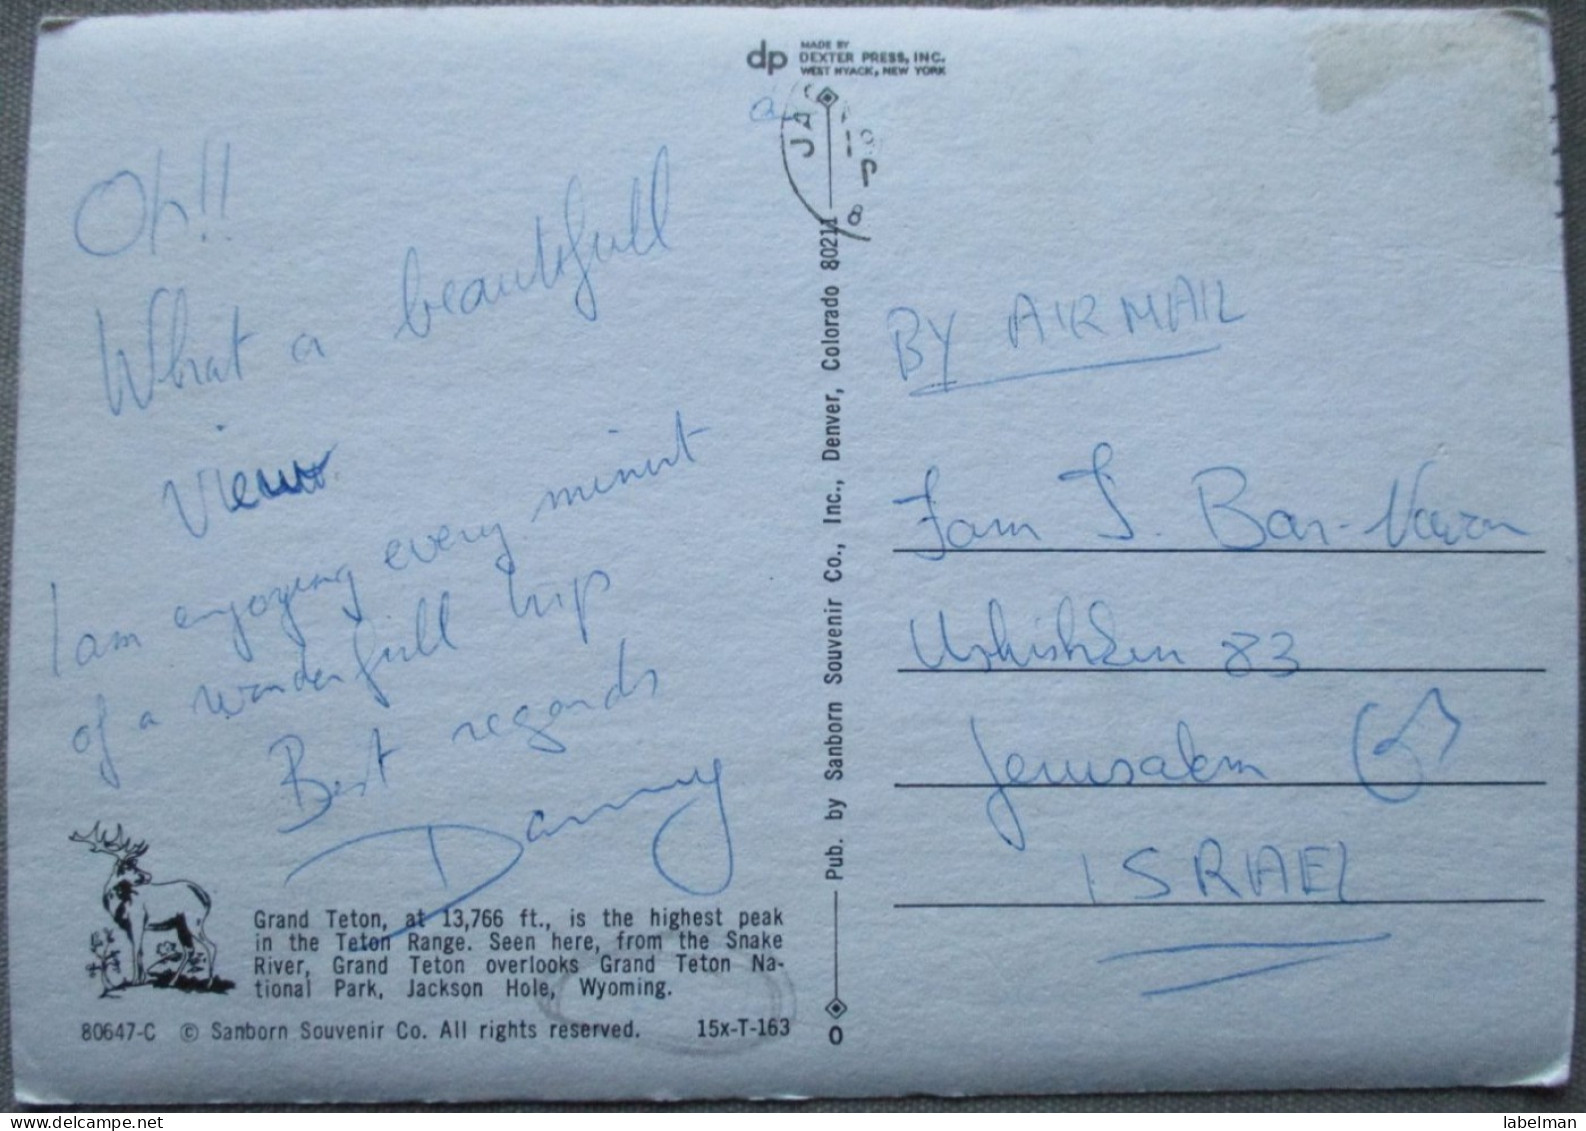 dp MADE BY
DEXTER PRESS, INC.
WEST NYACK, NEW YORK
Oh!!
What a beautifull
view
I am enjoying every minut
of a wonderfull trip
Best regards
Danny
Grand Teton, at 13,766 ft., is the highest peak
in the Teton Range. Seen here, from the Snake
River, Grand Teton overlooks Grand Teton Na-
tional Park, Jackson Hole, Wyoming.
80647-C © Sanborn Souvenir Co. All rights reserved. 15x-T-163
Pub. by Sanborn Souvenir Co., Inc., Denver, Colorado 80211
0
BY AIR MAIL
Fam Bar-
Ushishkin 83
Jerusalem
ISRAEL
labelman